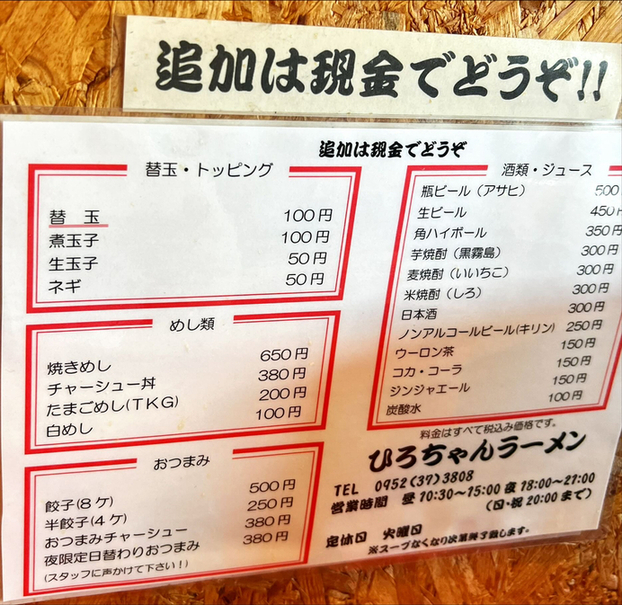 追加は現金でどうぞ!!
追加は現金でどうぞ
替玉・トッピング
替 玉 100円
煮玉子 100円
生玉子 50円
ネギ 50円
めし類
焼きめし 650円
チャーシュー丼 380円
たまごめし(TKG) 200円
白めし 100円
おつまみ
餃子(8ケ) 500円
半餃子(4ケ) 250円
おつまみチャーシュー 380円
夜限定日替わりおつまみ 380円
(スタッフに声かけて下さい!)
酒類・ジュース
瓶ビール(アサヒ) 500
生ビール 450円
角ハイボール 350円
芋焼酎(黒霧島) 300円
麦焼酎(いいちこ) 300円
米焼酎(しろ) 300円
日本酒 300円
ノンアルコールビール(キリン) 250円
ウーロン茶 150円
コカ・コーラ 150円
ジンジャエール 150円
炭酸水 100円
料金はすべて税込み価格です。
ひろちゃんラーメン
TEL 0952(37)3808
営業時間 昼10:30〜15:00 夜18:00〜21:00
(日・祝20:00まで)
定休日 火曜日
※スープなくなり次第終了致します。